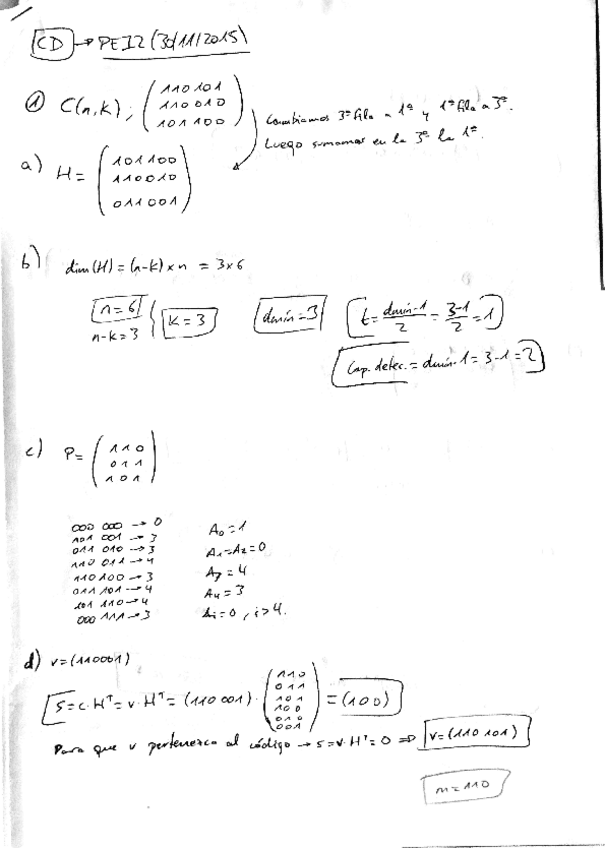 CD → PEI2 (30/11/2015)
① C(n,k); (110101
110010
101100)
Cambiamos 3ª fila a 1ª y 1ª fila a 3ª.
Luego sumamos en la 3ª la 1ª.
a) H = (101100
110010
011001)
b) dim(H) = (n-k) x n = 3x6
n=6
n-k=3 { k=3
dmín=3
t = dmín-1/2 = 3-1/2 = 1
Cap. detec. = dmín-1 = 3-1 = 2
c) P = (110
011
101)
000 000 → 0
101 001 → 3
011 010 → 3
110 011 → 4
110 100 → 3
011 101 → 4
101 110 → 4
000 111 → 3
A₀ = 1
A₁ = A₂ = 0
A₃ = 4
A₄ = 3
Ai = 0, i>4.
d) v = (110001)
S = c·Hᵀ = v·Hᵀ = (110 001) · (110
011
101
100
010
001) = (100)
Para que v pertenezca al código → s = v·Hᵀ = 0 ⇒ v = (110 101)
m = 110